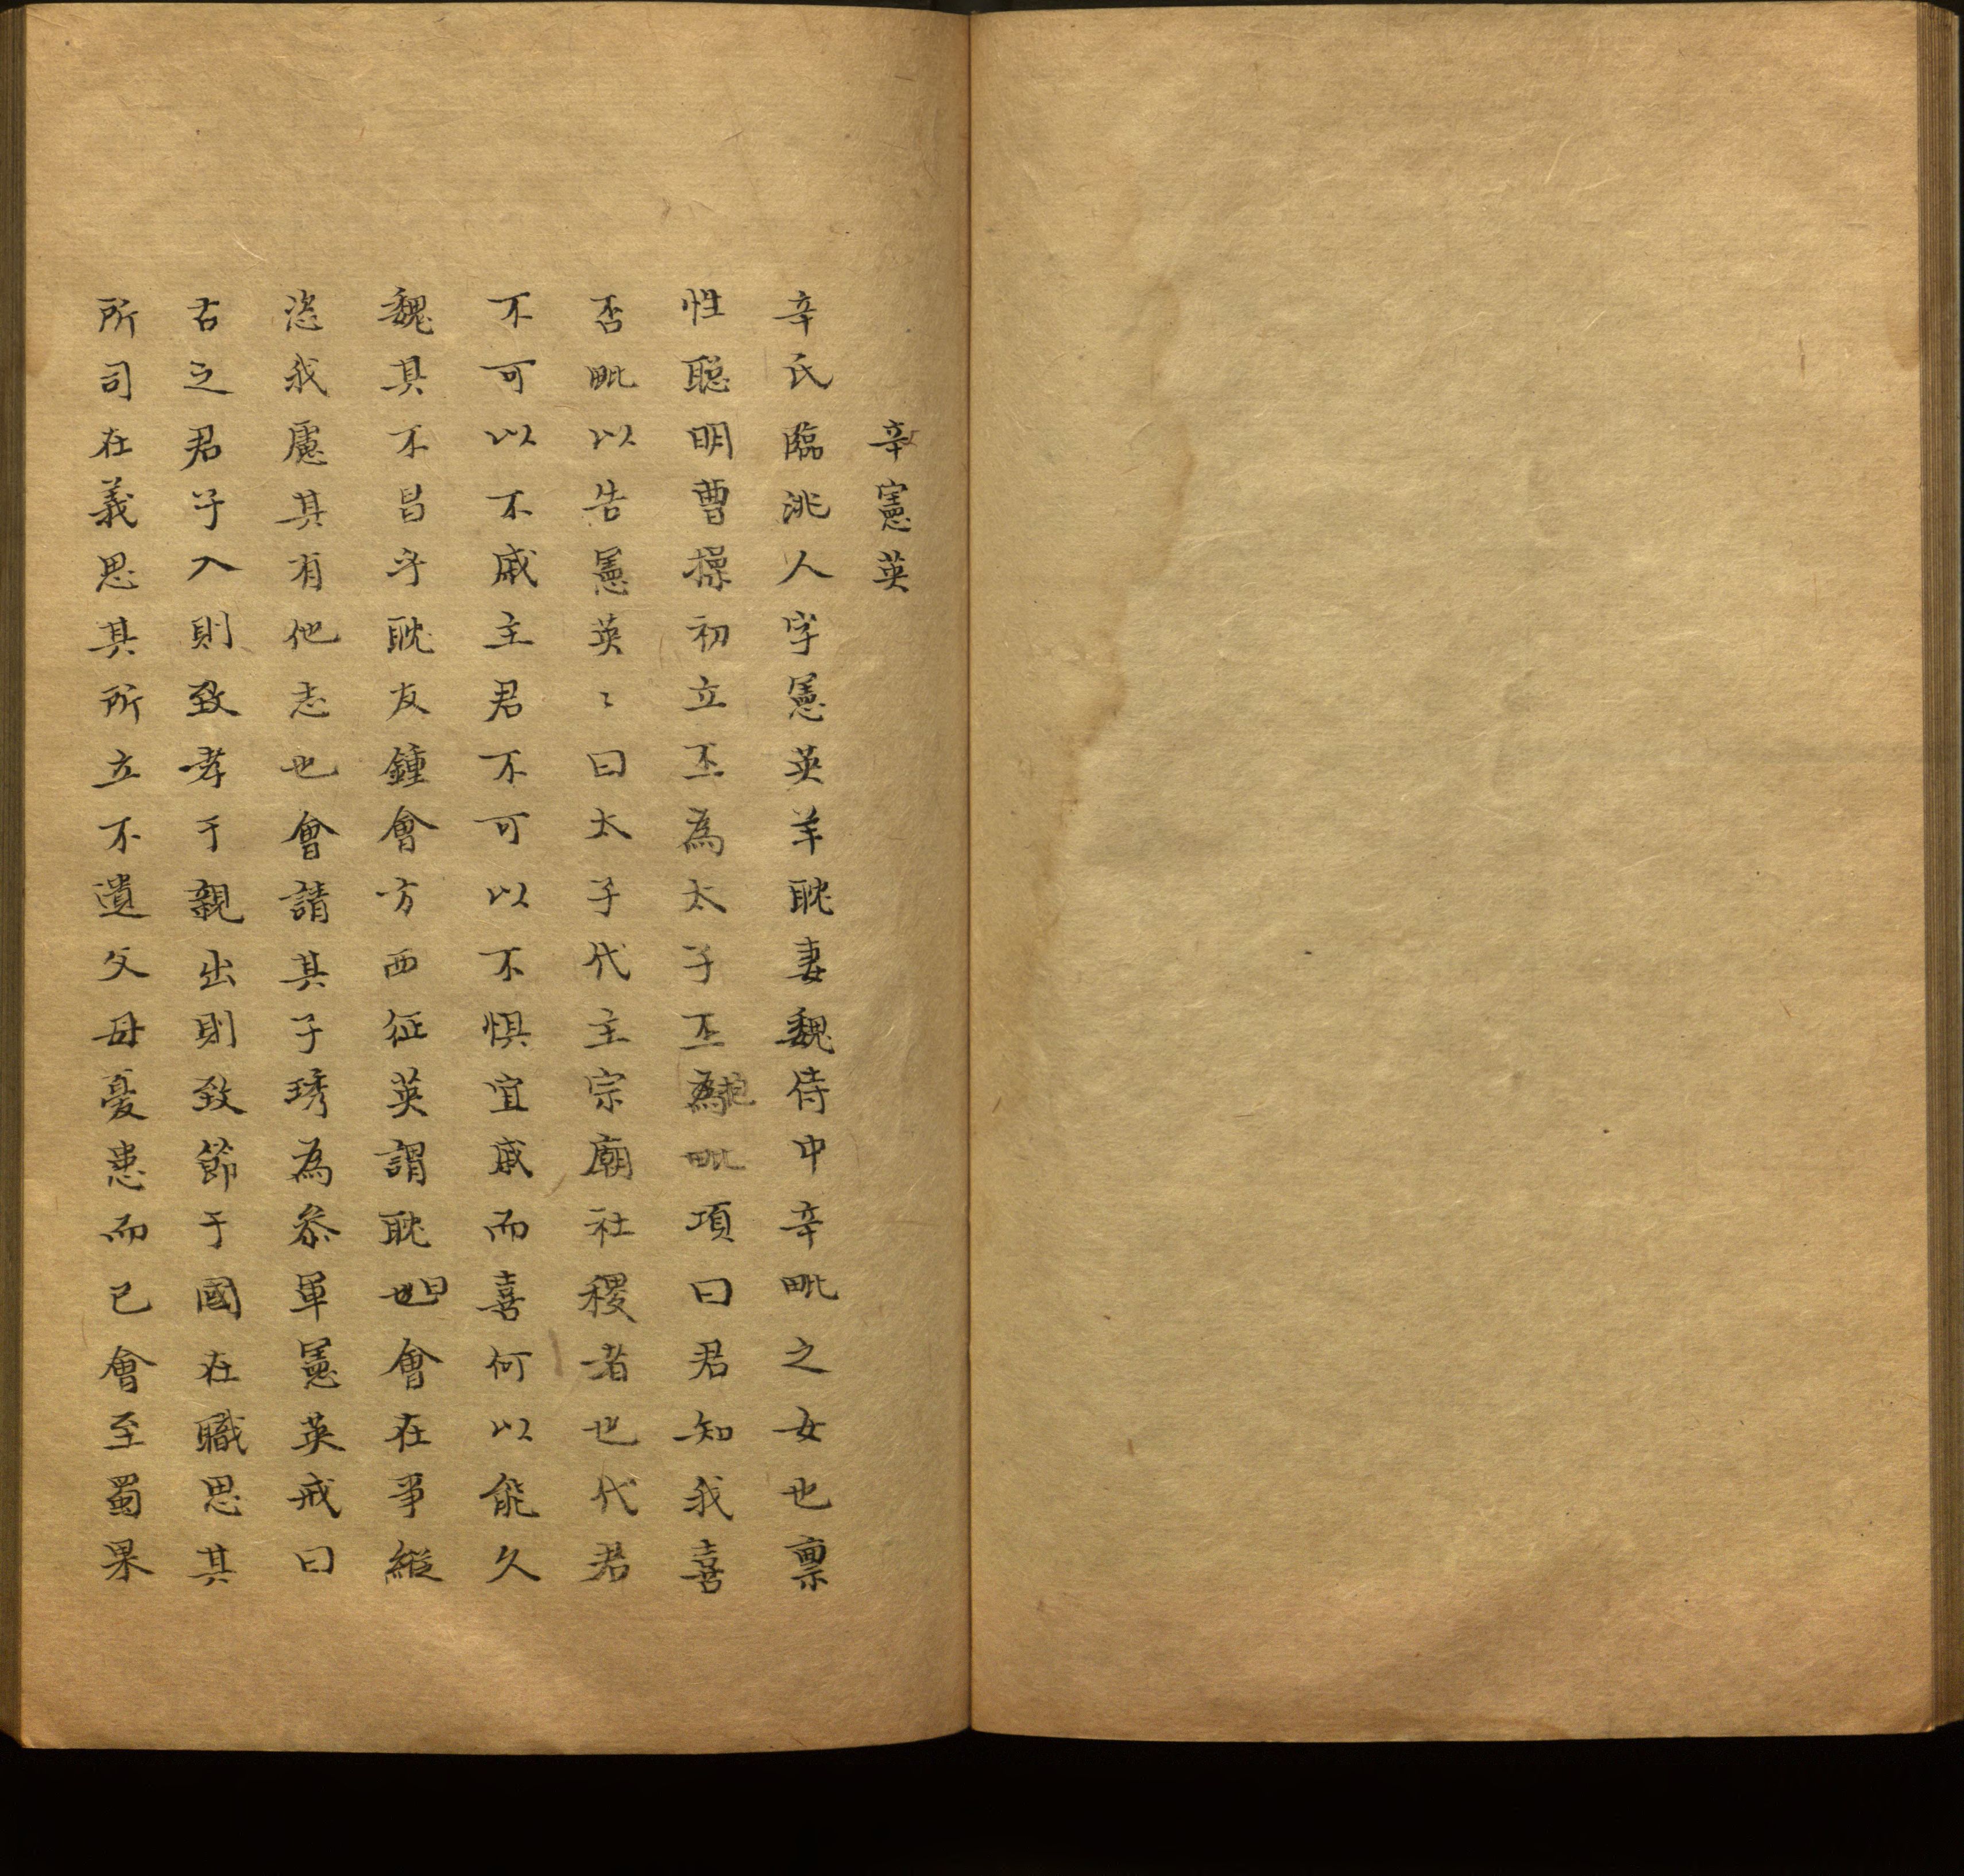 辛憲英
辛氏臨洮人字憲英羊耽妻魏侍中辛毗之女也禀
性聰明曹操初立丕為太子丕抱毗項曰君知我喜
否毗以告憲英〻曰太子代主宗廟社稷者也代君
不可以不戚主君不可以不惧宜戚而喜何以能久
魏其不昌乎耽友鍾會方西征英謂耽曰會在事縱
恣我慮其有他志也會請其子琇為叅軍憲英戒曰
古之君子入則致孝于親出則致節于國在職思其
所司在義思其所立不遺父母憂患而已會至蜀果